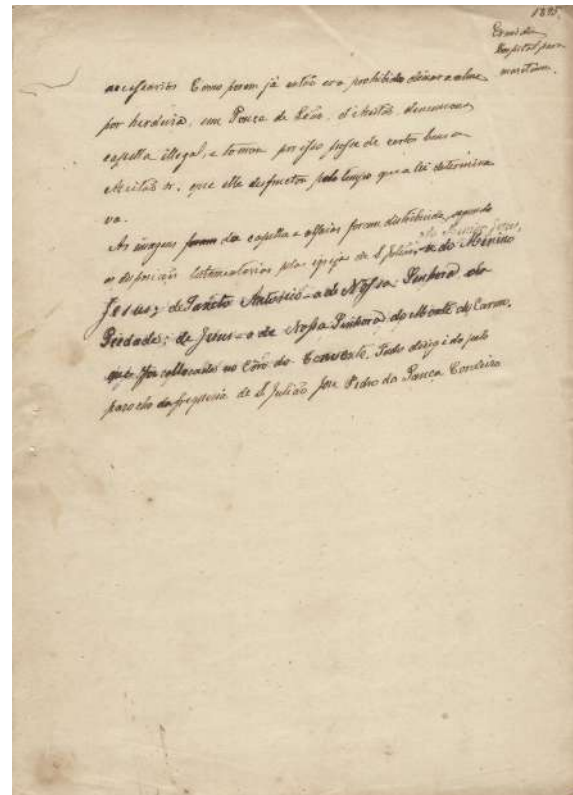 1895
Ermida
Hospital para
maritimos
necessarios Como porem já então era prohibido deixar a alma
por herdeira, um Ponce de Leão, d'ahi denunciou
capella illegal, e tomou por isso posse de certos bens a
que elle desfructou pelo tempo que a lei determina
va.
As imagens foram da capella e alfaias foram distribuidas segundo
as disposições testamentarias pelas igrejas de S. Julião, a do Menino
do Menino Jesus,
Jesus; de Sancto Antonio - a de Nossa Senhora da
Piedade; de Jesus - a de Nossa Senhora do Monte do Carmo,
que foi collocada no Côro do Convento. Tudo dirigido pelo
parocho da freguesia de S. Julião José Pedro da Cordeiro